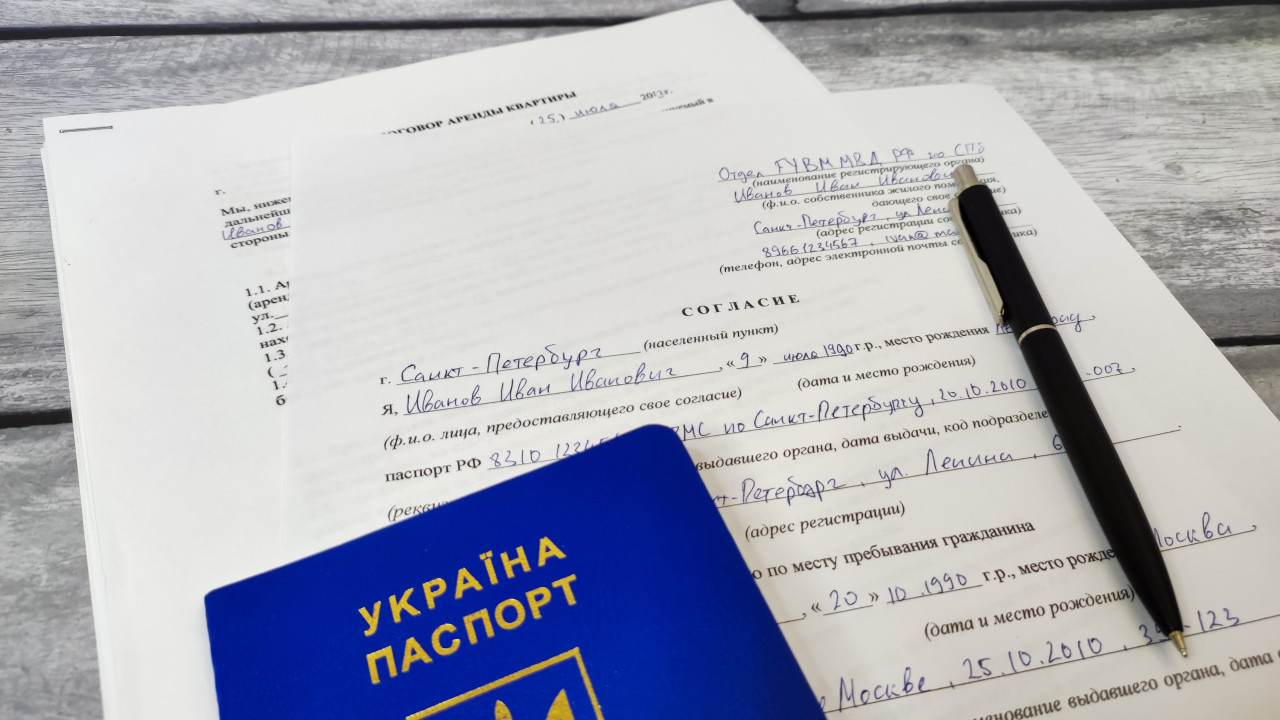 ДОГОВОР АРЕНДЫ КВАРТИРЫ
(25) июля 2013г.
г.
Мы,
Иванов
стороны
1.1.
ул.
1.2.
1.3
Отдел ГУВМ МВД РФ по СПб
(наименование регистрирующего органа)
Иванов Иван Иванович
(ф.и.о. собственника жилого
дающего свое
Санкт-Петербург, ул
(адрес регистрации
89661234567,
(телефон, адрес электронной почты
СОГЛАСИЕ
г. Санкт-Петербург
(населенный пункт)
Я, Иванов Иван Иванович, «9» июля 1990 г.р., место рождения
(ф.и.о. лица, предоставляющего свое согласие)
(дата и место рождения)
паспорт РФ 8310 по Санкт-Петербургу, 20.10.2010 007,
выдавшего органа, дата выдачи, код
ул. Ленина,
(адрес регистрации)
по месту пребывания гражданина
, «20» 10.1990 г.р., место Москва,
(дата и место рождения)
Москве, 25.10.2010, 123
выдавшего органа, дата
УКРАЇНА
ПАСПОРТ